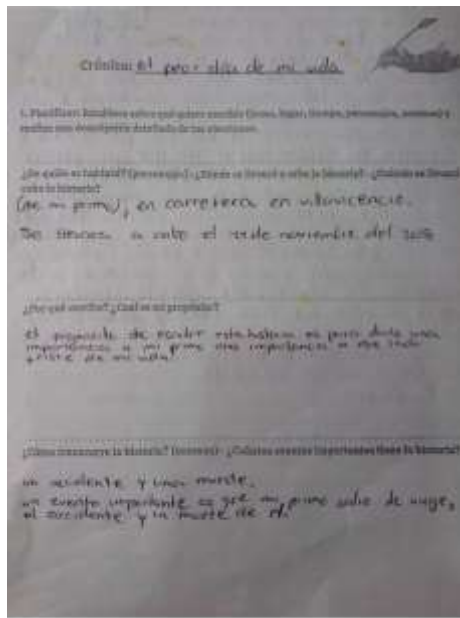 Crónica: el peor día de mi vida
1. Planificar: Establece sobre qué quiero escribir (tema, lugar, tiempo, personajes, sucesos) y
realizo una descripción detallada de las
¿De quién se hablará? (personajes) - ¿Dónde se llevará a cabo la historia? - ¿Cuándo se llevará a
cabo la historia?
(de mi primo), en carretera en villavicencio.
Se llevara a cabo el de noviembre del
¿Por qué escribo? ¿Cuál es mi propósito?
el proposito de escribir esta historia es para darle una
importancia a mi primo una importancia a ese
triste de mi vida
¿Cómo transcurre la historia? (sucesos) - ¿Cuántos eventos importantes tiene la historia?
un accidente y una muerte.
un evento importante es que mi primo salio de viaje,
el accidente y la muerte de el.